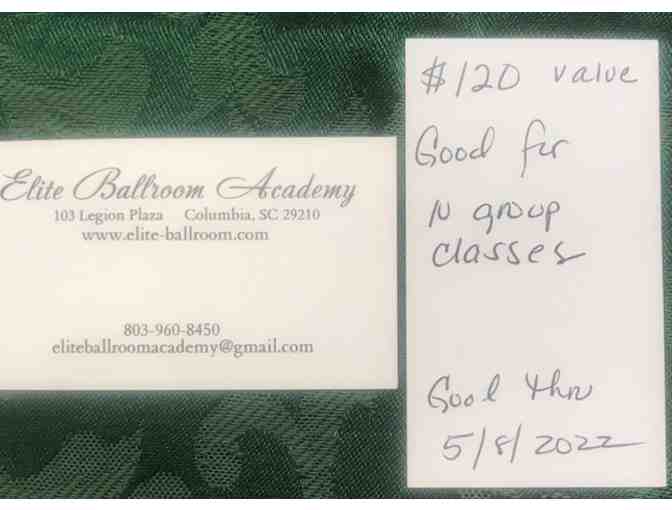 Elite Ballroom Academy
103 Legion Plaza Columbia, SC 29210
www.elite-ballroom.com
803-960-8450
eliteballroomacademy@gmail.com
$120 value
Good for
group
classes
Good thru
5/8/2022